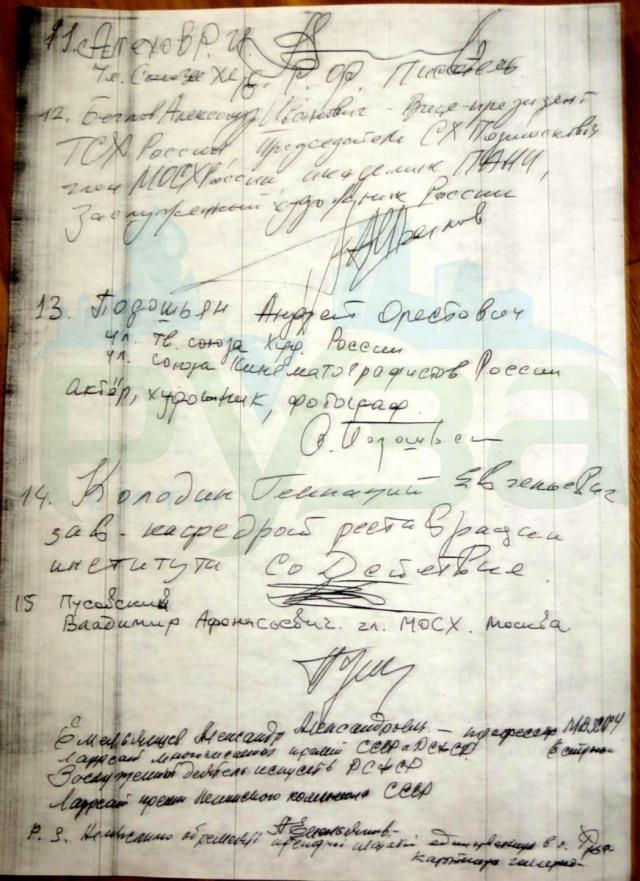 11. Алехов Р. Г.
Чл. Союза Худ. Р. Ф. Писатель
12. Беглов Александр Иванович - Вице-президент
ТСХ России, Председатель СХ Подмосковья
член МОСХ России академик ПАНИ,
Заслуженный художник России
13. Подошьян Андрей Орестович
чл. тв. союза Худ. России
чл. союза кинематографистов России
актёр, художник, фотограф.
А. Подошьян
14. Колодин Геннадий Евгеньевич
зав. кафедрой реставрации
института Со Действие
РУЗА
15 Пусовский
Владимир Афонасьевич. чл. МОСХ. Москва.
Емельянцев Александр Александрович - профессор
Лауреат премии СССР и РСФСР
Заслуженный деятель искусств РСФСР
Лауреат премии Ленинского комсомола СССР
P. S.